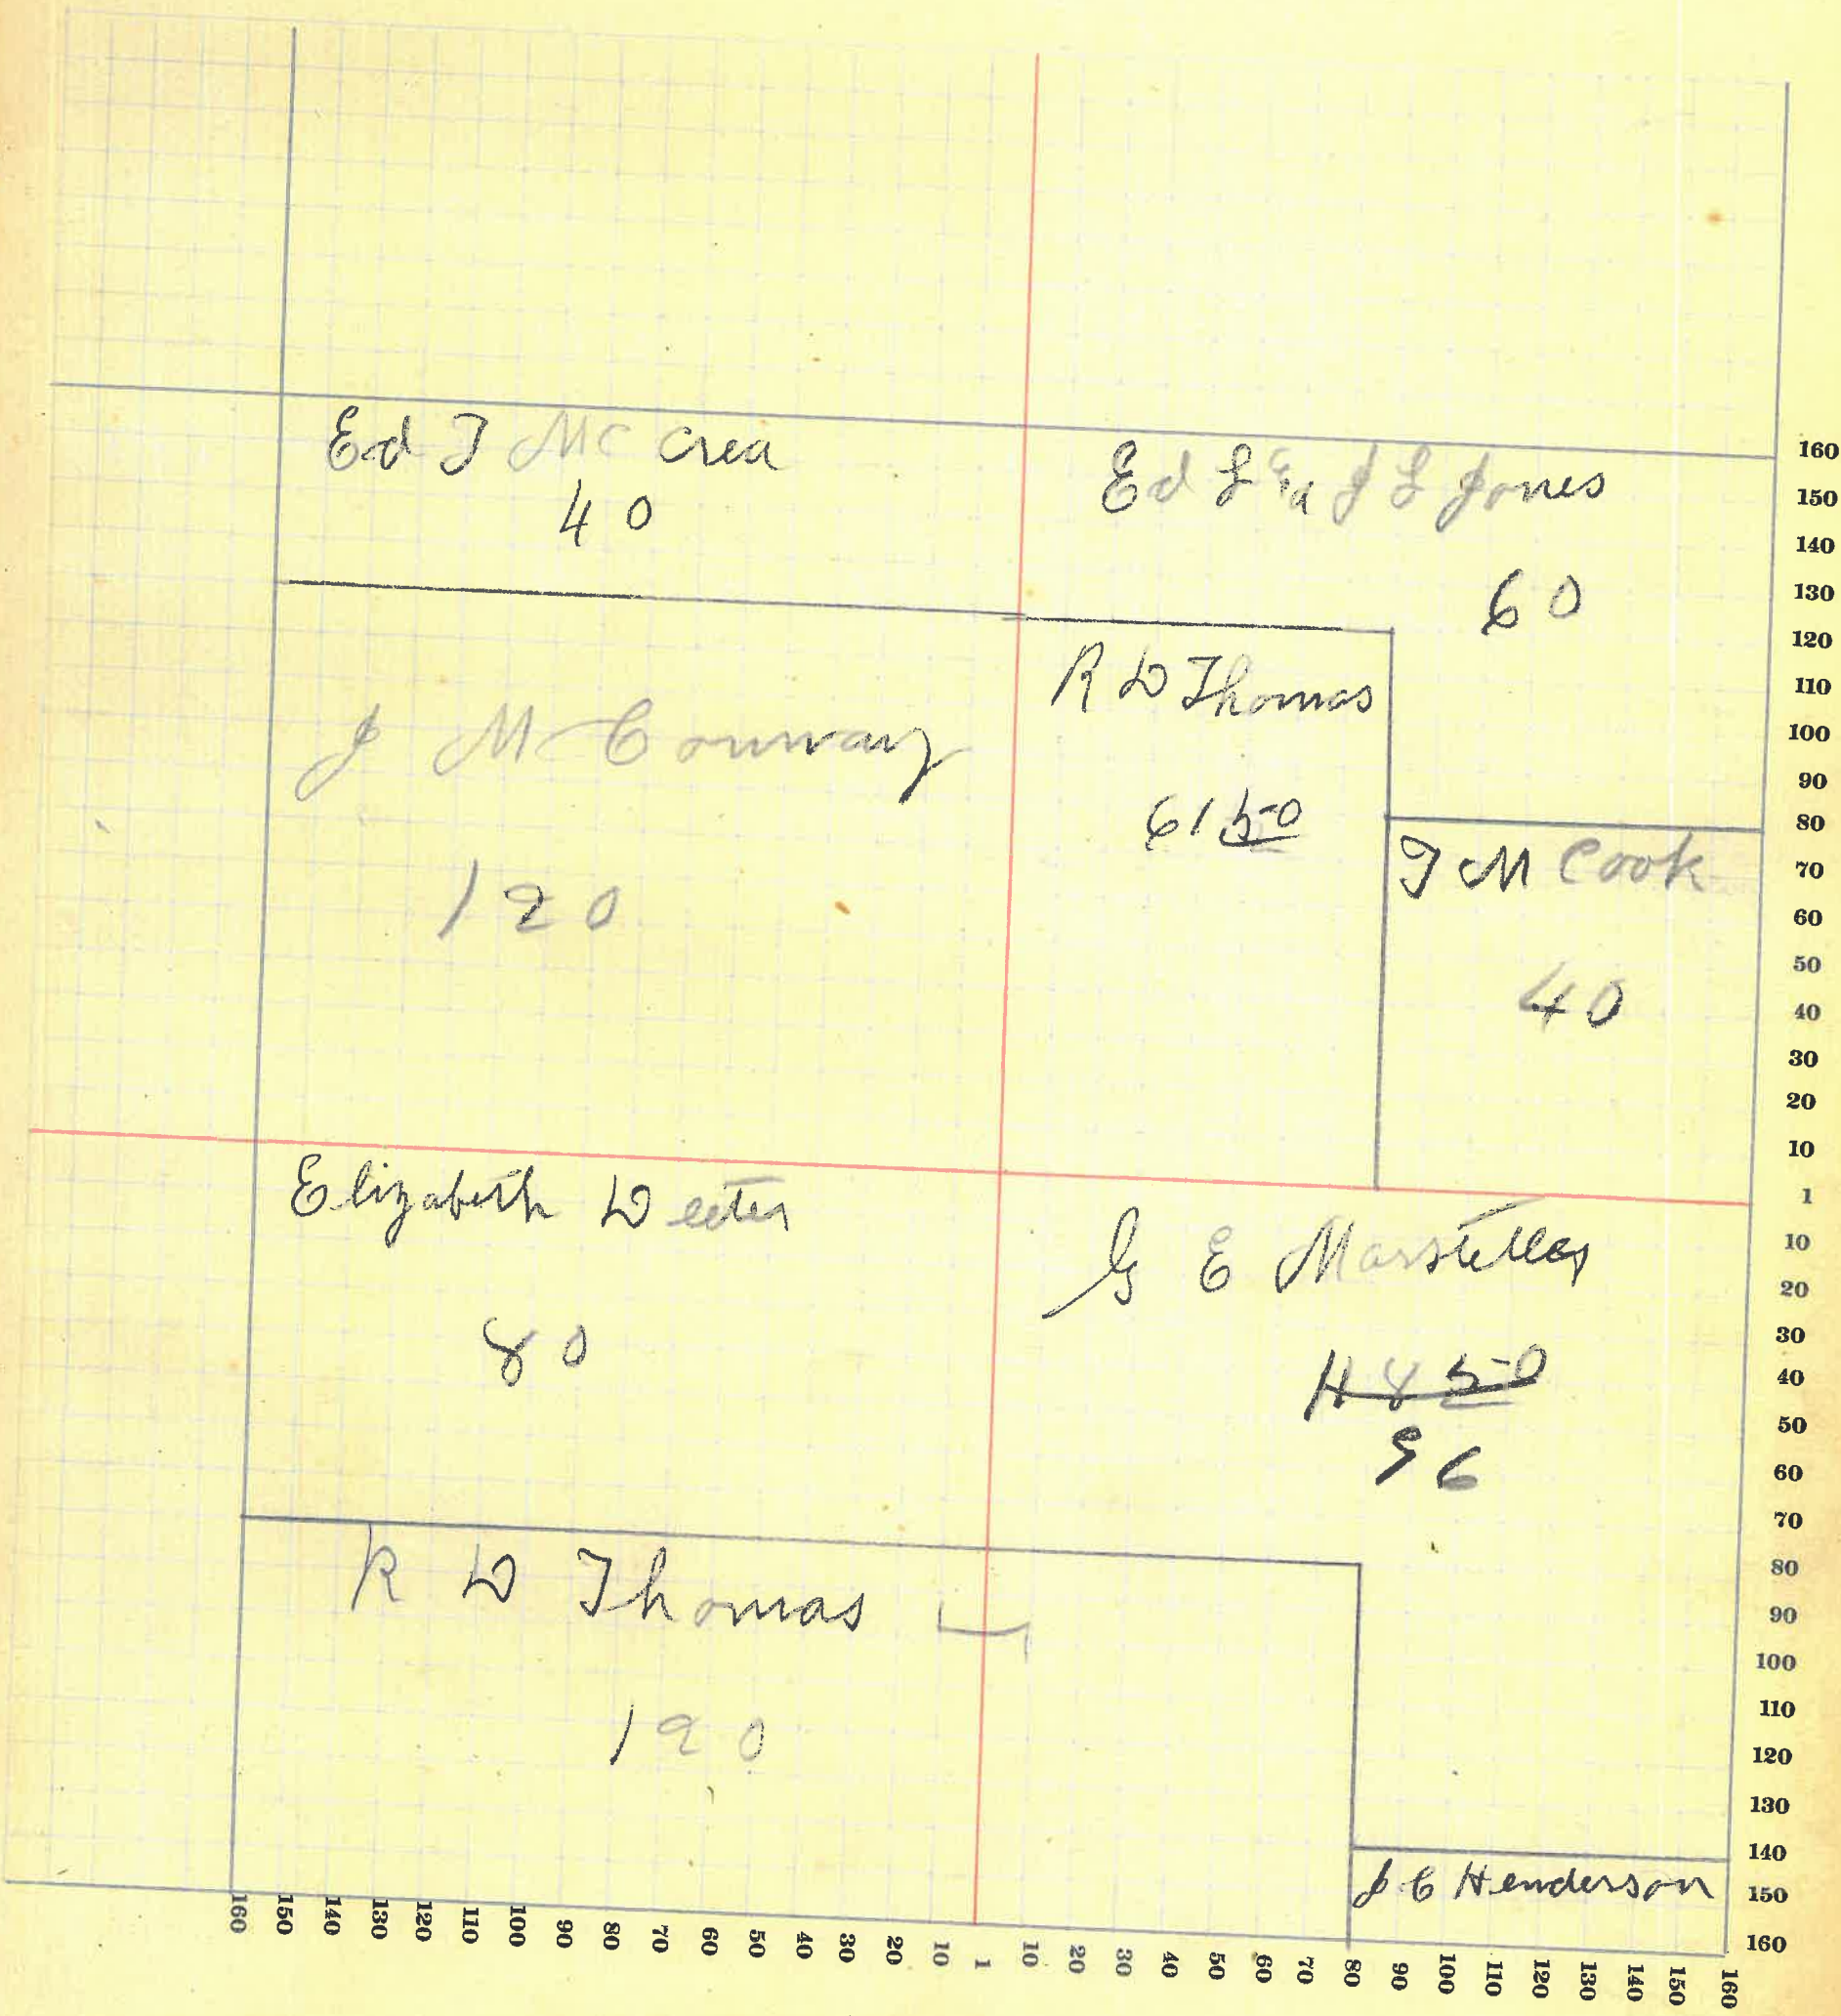 Ed T McCrea
40
Ed L & J L Jones
60
R D Thomas
61 50
J M Conway
120
T M Cook
40
Elizabeth Deeter
80
G E Marsteller
48 50
96
R D Thomas
120
J. C Henderson
160
150
140
130
120
110
100
90
80
70
60
50
40
30
20
10
1
10
20
30
40
50
60
70
80
90
100
110
120
130
140
150
160
160 150 140 130 120 110 100 90 80 70 60 50 40 30 20 10 1 10 20 30 40 50 60 70 80 90 100 110 120 130 140 150 160